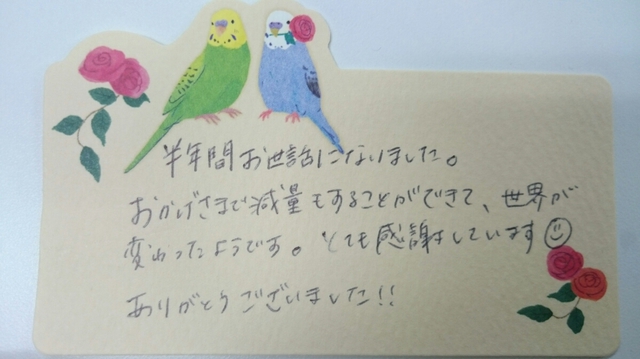 半年間お世話になりました。
おかげさまで減量もすることができて、世界が
変わったようです。とても感謝しています☺
ありがとうございました!!